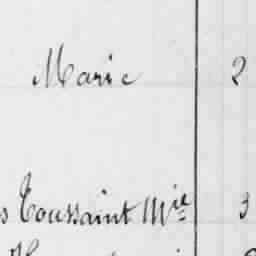 Marie 2
s Toussaint Mie 3